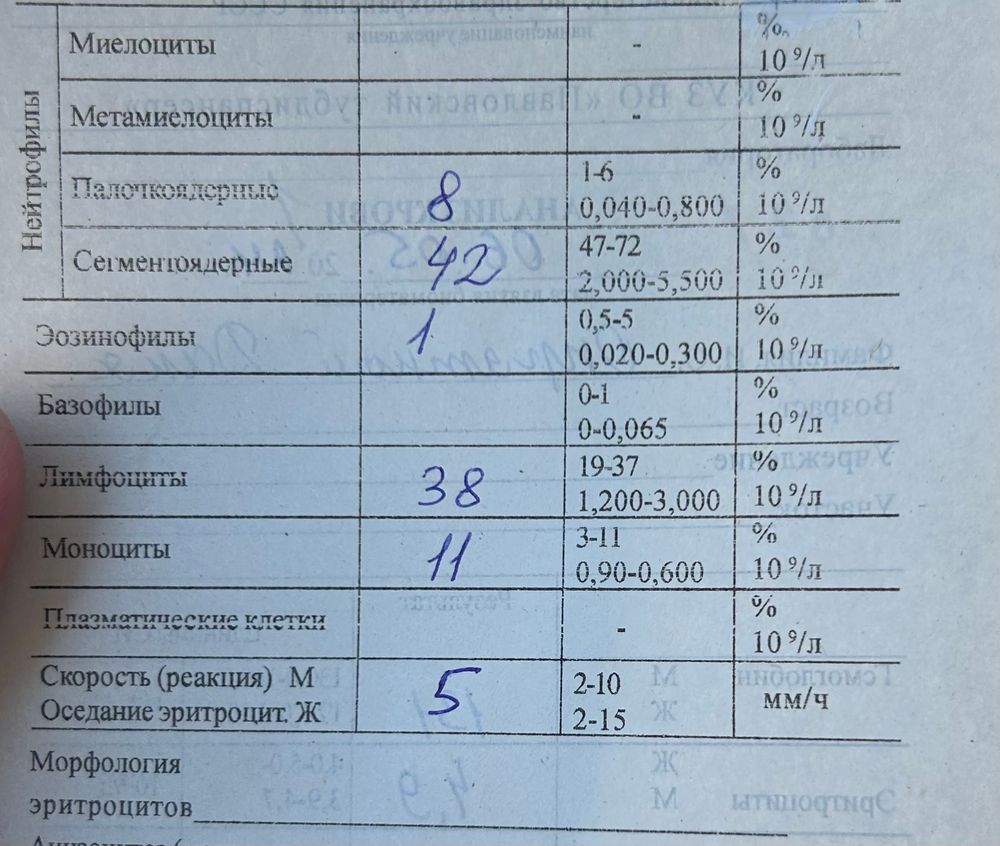 Нейтрофилы
Миелоциты - %
10 9/л
Метамиелоциты - %
10 9/л
Палочкоядерные 8 1-6 %
0,040-0,800 10 9/л
Сегментоядерные 42 47-72 %
2,000-5,500 10 9/л
Эозинофилы 1 0,5-5 %
0,020-0,300 10 9/л
Базофилы 0-1 %
0-0,065 10 9/л
Лимфоциты 38 19-37 %
1,200-3,000 10 9/л
Моноциты 11 3-11 %
0,90-0,600 10 9/л
Плазматические клетки - %
10 9/л
Скорость (реакция) М 5 2-10 мм/ч
Оседание эритроцит. Ж 2-15
Морфология
эритроцитов